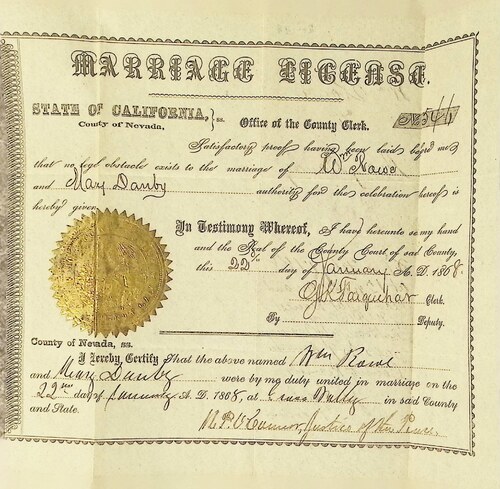 MARRIAGE LICENSE.
STATE OF CALIFORNIA, } ss. Office of the County Clerk. No 541
County of Nevada,
Satisfactory proof having been laid before me
that no legal obstacle exists to the marriage of Wm Rowe
and Mary Danby authority for the celebration hereof is
hereby given
In Testimony Whereof, I have hereunto set my hand
and the Seal of the County Court of said County,
this 22nd day of January A. D. 1868.
Farquhar Clerk.
By Deputy.
County of Nevada, ss.
I Hereby Certify That the above named Wm Rowe
and Mary Danby were by me duly united in marriage on the
22nd day of January A. D. 1868, at Grass Valley in said County
and State.
O'Connor, Justice of the Peace.